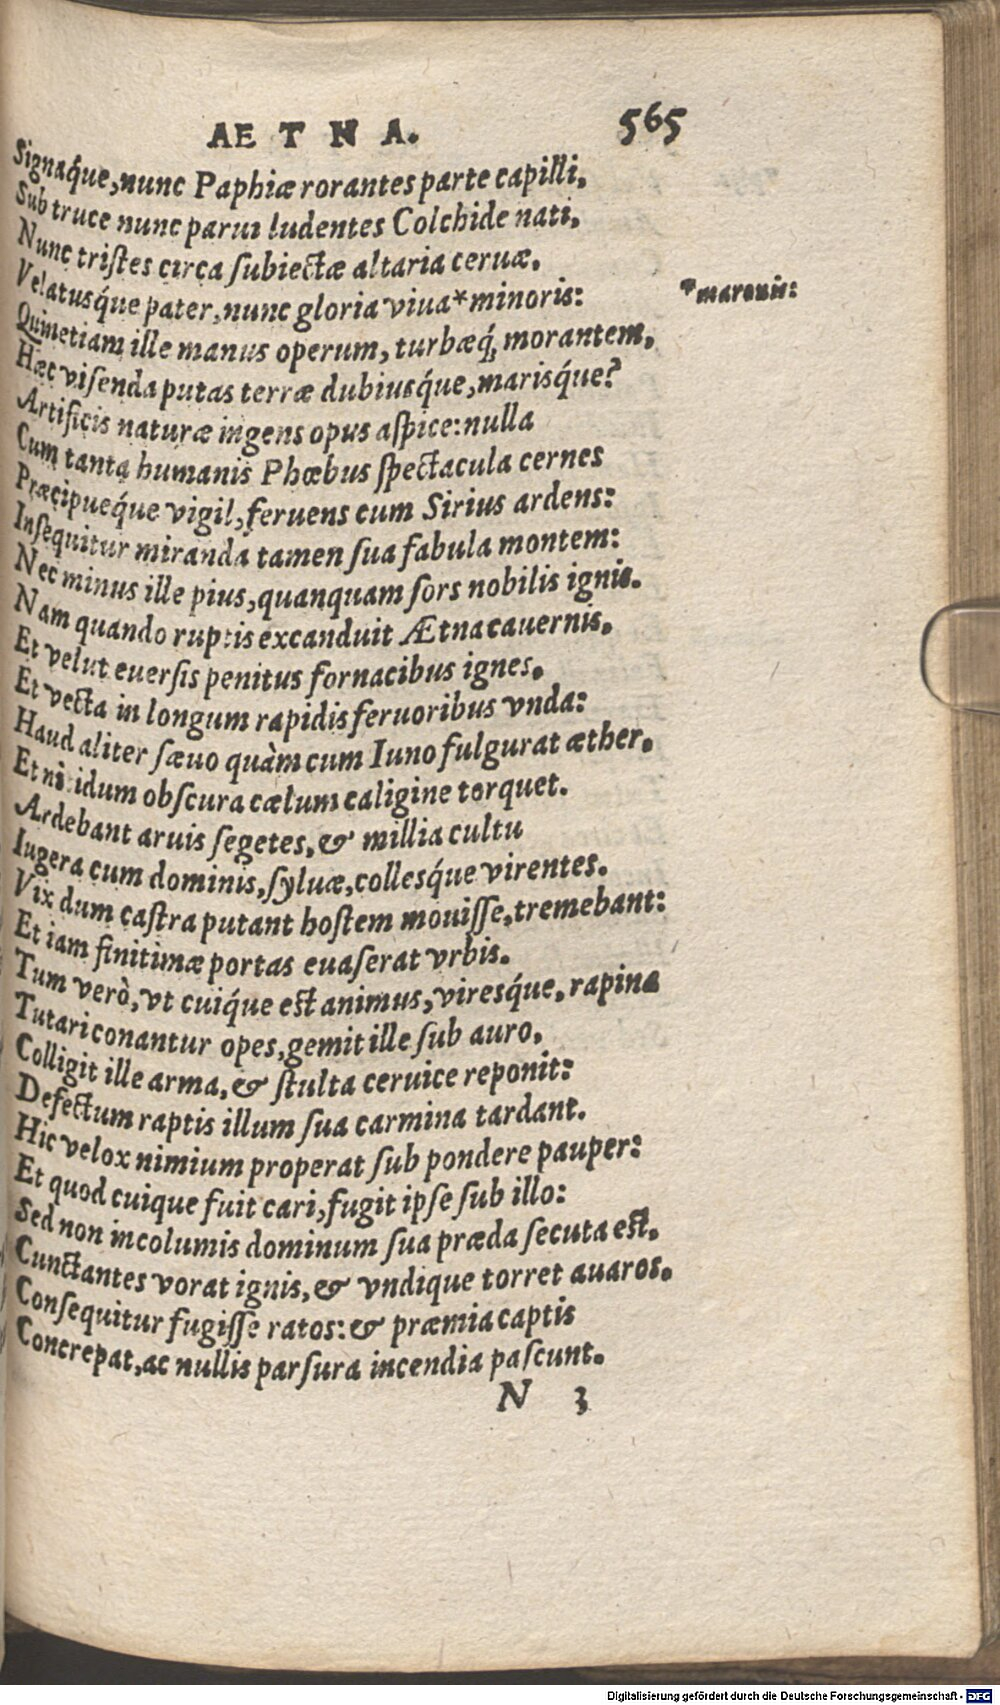 AETNA. 565
Signaq́ue, nunc Paphiæ rorantes parte capilli,
Sub truce nunc parui ludentes Colchide nati,
Nunc tristes circa subiectæ altaria ceruæ,
Velatusq́ue pater, nunc gloria viua*minoris: *maronis:
Quinetiam ille manus operum, turbæq́, morantem,
Hæc visenda putas terræ dubiusq́ue, marisq́ue?
Artificis naturæ ingens opus aspice: nulla
Cum tanta humanis Phœbus spectacula cernes
Præcipueq́ue vigil, feruens cum Sirius ardens:
Insequitur miranda tamen sua fabula montem:
Nec minus ille pius, quanquam sors nobilis ignis.
Nam quando ruptis excanduit Ætna cauernis,
Et velut euersis penitus fornacibus ignes,
Et vecta in longum rapidis feruoribus vnda:
Haud aliter sæuo quàm cum Iuno fulgurat æther,
Et nitidum obscura cælum caligine torquet.
Ardebant aruis segetes, & millia cultu
Iugera cum dominis, syluæ, collesq́ue virentes.
Vix dum castra putant hostem mouisse, tremebant:
Et iam finitimæ portas euaserat vrbis.
Tum verò, vt cuiq́ue est animus, viresq́ue, rapina
Tutari conantur opes, gemit ille sub auro,
Colligit ille arma, & stulta ceruice reponit:
Defectum raptis illum sua carmina tardant.
Hic velox nimium properat sub pondere pauper:
Et quod cuique fuit cari, fugit ipse sub illo:
Sed non incolumis dominum sua præda secuta est.
Cunctantes vorat ignis, & vndique torret auaros.
Consequitur fugisse ratos: & præmia captis
Concrepat, ac nullis parsura incendia pascunt.
N 3
Digitalisierung gefördert durch die Deutsche Forschungsgemeinschaft - DFG